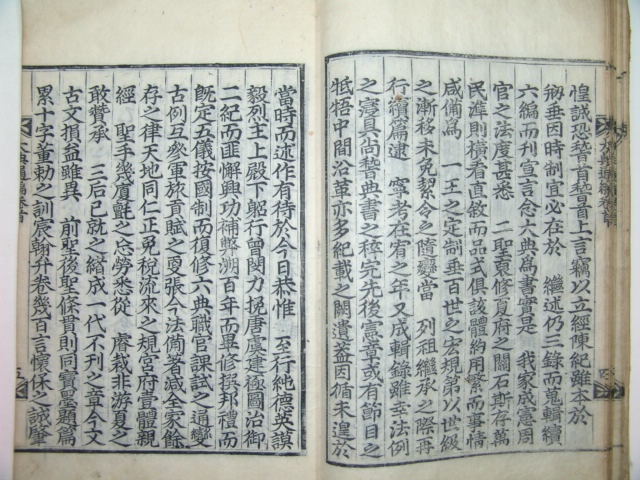 惶誠恐稽首稽首上言竊以立經陳紀雖本於
刱垂因時制宜必在於 繼述仍三錄而蒐輯續
六編而刊宣言念六典爲書實是 我家成憲周
官之法度甚悉 二聖裒修夏府之關石斯存萬
民準則橫看直敘而品式俱該體約用繁而事情
咸備爲 一王之定制垂百世之宏規第以世級
之漸移未免絜令之隨變當 列祖繼承之際再
行續篇逮 寧考在宥之年又成輯錄雖幸法例
之寖具尚 典書之稡完先後憲章或有節目之
牴牾中間沿革亦多紀載之闕遺蓋因循未遑於
當時而述作有待於今日恭惟 至行純德英謨
毅烈主上殿下躬行曾閔力挽唐虞建極圖治御
二紀而匪懈興功補弊溯百年而畢修撰邦禮而
旣定五儀按國制而復修六典職官課試之通變
古例互參軍旅貢賦之更張今法備著減全家餘
存之律天地同仁正免稅流來之規宮府壹體親
經 聖手幾廈氈之忘勞悉從 睿裁非游夏之
敢贊承 三后已就之緖成一代不刊之章今文
古文損益雖異 前聖後聖條貫則同寶墨題篇
累十字董勅之訓宸翰弁卷幾百言懷保之誠肇
大典通編卷首